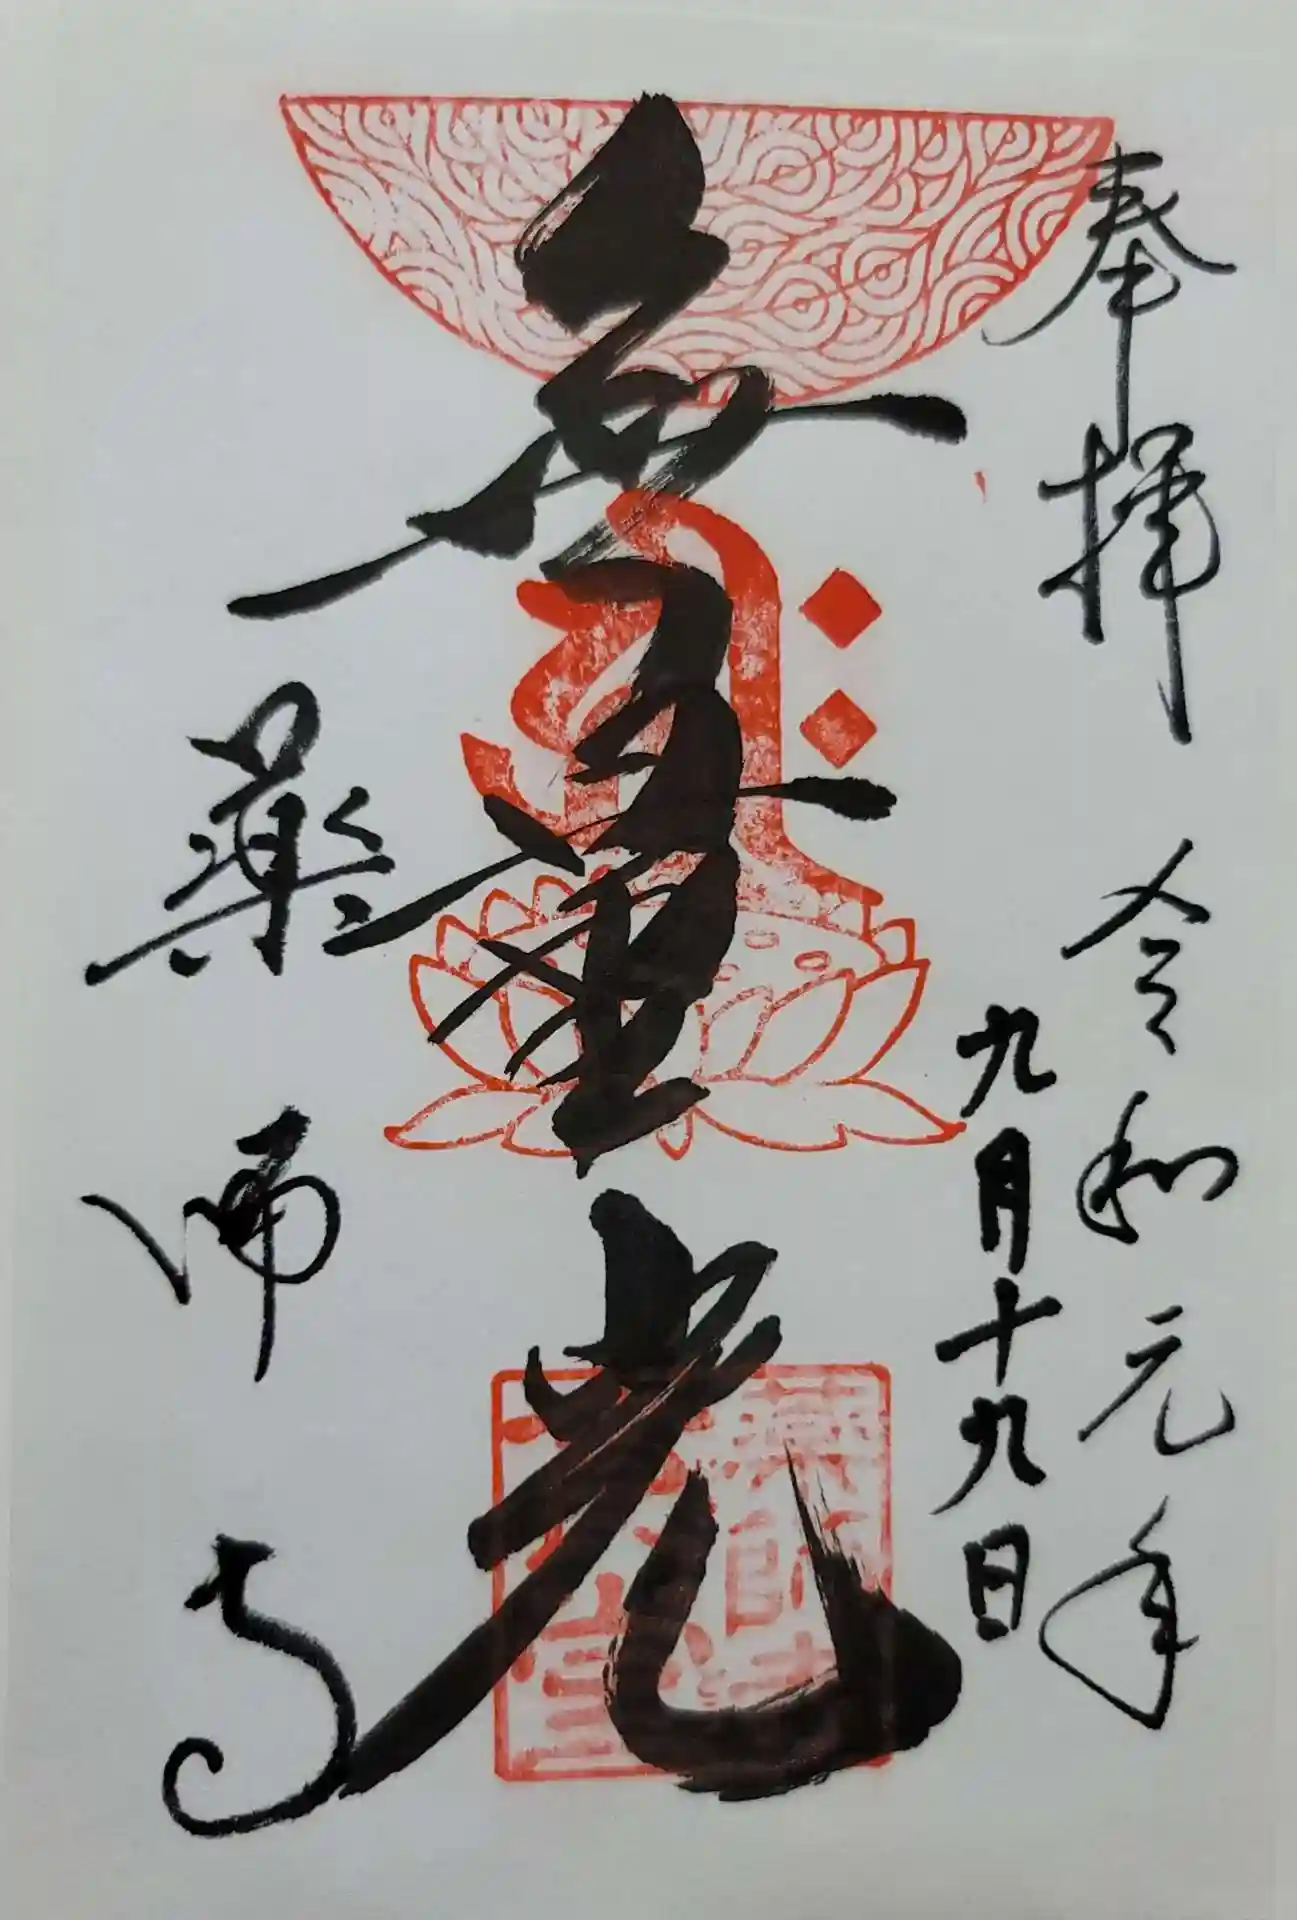 奉拝
令和元年
九月十九日
無量光
薬師寺